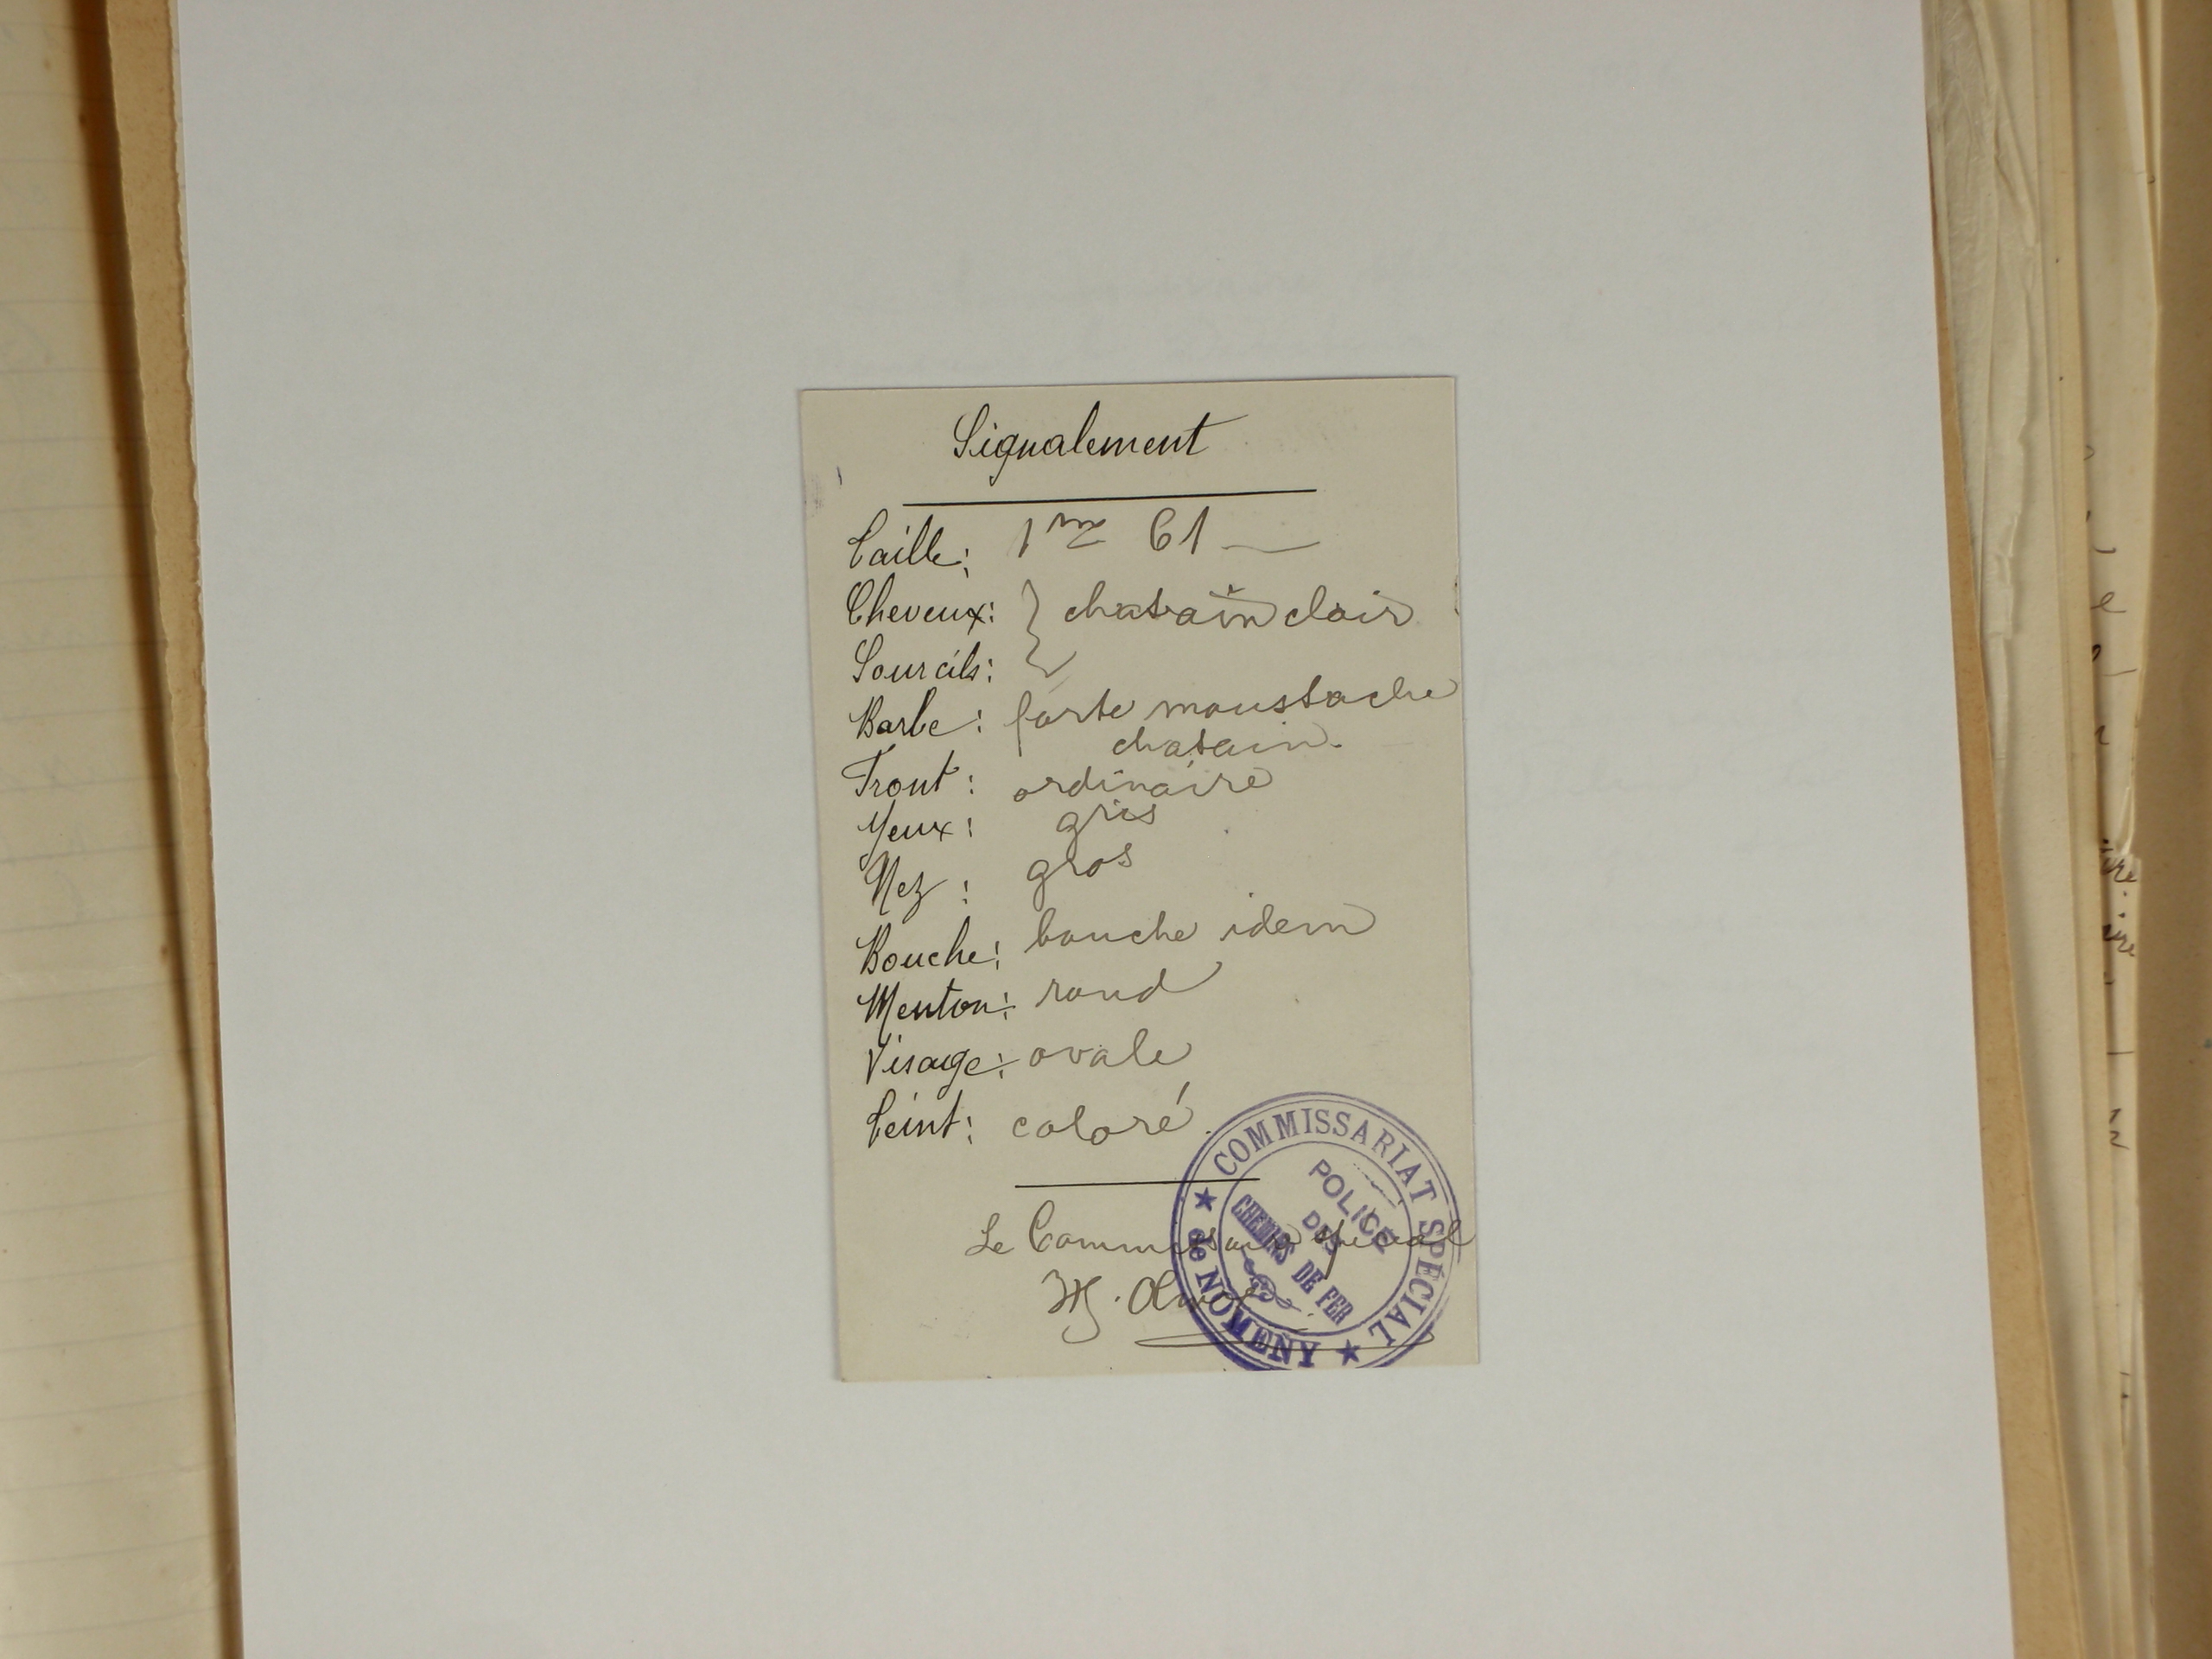 Signalement
Taille: 1 m 61
Cheveux: } chatain clair
Sourcils:
Barbe: forte moustache
chatain.
Front: ordinaire
Yeux: gris
Nez: gros
Bouche: bouche idem
Menton: rond
Visage: ovale
Teint: coloré.
Le Commissaire spécial
COMMISSARIAT SPÉCIAL
★ de NOMENY ★
POLICE
DES
CHEMINS DE FER